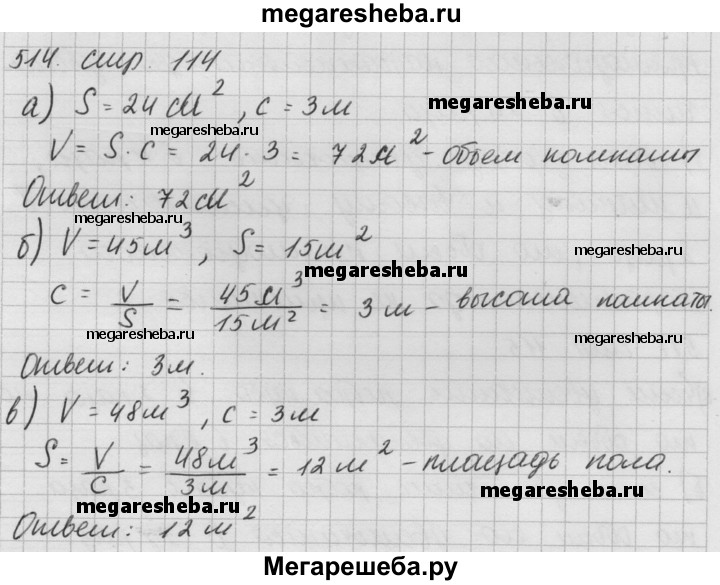 megaresheba.ru
514. стр. 114
а) S = 24 м², c = 3 м
megaresheba.ru
megaresheba.ru
V = S · c = 24 · 3 = 72 м² - Объем комнаты
Ответ: 72 м²
megaresheba.ru
б) V = 45 м³, S = 15 м²
megaresheba.ru
c = V/S = 45 м³/15 м² = 3 м - высота комнаты.
megaresheba.ru
megaresheba.ru
Ответ: 3 м.
в) V = 48 м³, c = 3 м
S = V/c = 48 м³/3 м = 12 м² - площадь пола.
megaresheba.ru
megaresheba.ru
Ответ: 12 м²
Мегарешеба.ру